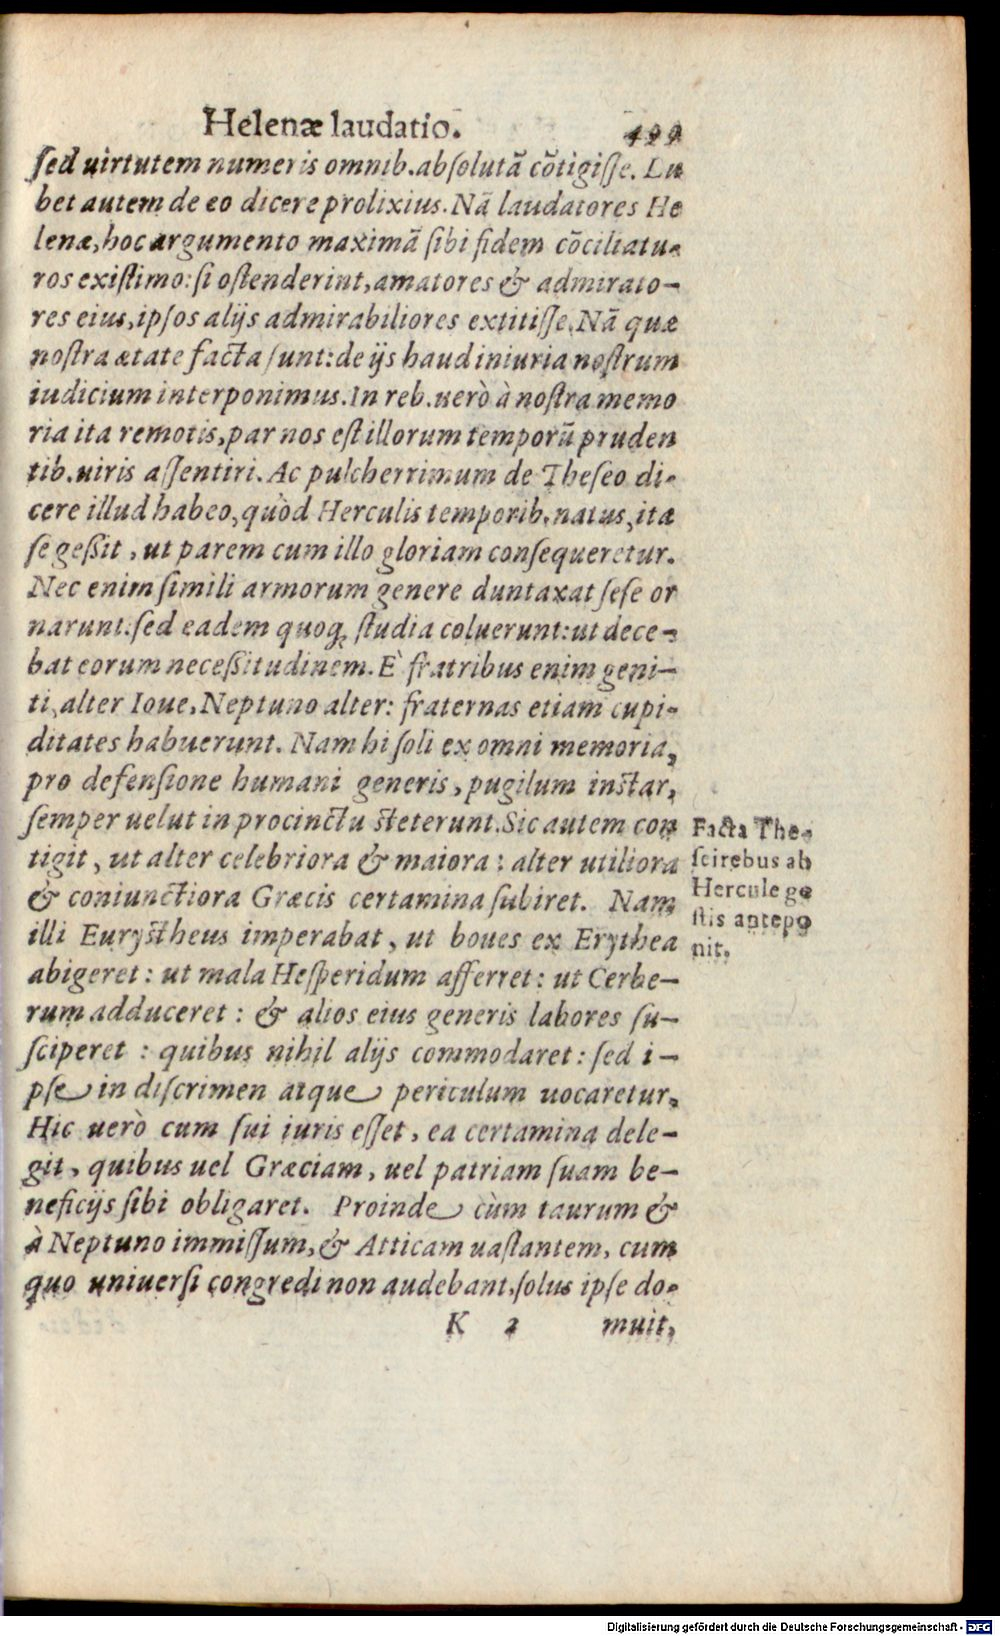 Helenæ laudatio. 499
ſed uirtutem numeris omnib. abſolutã cõtigiſſe. Lu
bet autem de eo dicere prolixius. Nã laudatores He
lenæ, hoc argumento maximã ſibi fidem cõciliatu-
ros exiſtimo: ſi oſtenderint, amatores & admirato-
res eius, ipſos alijs admirabiliores extitiſſe. Nã quæ
noſtra ætate facta ſunt: de ijs haud iniuria noſtrum
iudicium interponimus. In reb. uerò à noſtra memo
ria ita remotis, par nos eſt illorum temporũ pruden
tib. uiris aſſentiri. Ac pulcherrimum de Theſeo di-
cere illud habeo, quòd Herculis temporib. natus, ita
ſe geßit, ut parem cum illo gloriam conſequeretur.
Nec enim ſimili armorum genere duntaxat ſeſe or
narunt: ſed eadem quoq; ſtudia coluerunt: ut dece-
bat eorum neceßitudinem. E` fratribus enim geni-
ti, alter Ioue, Neptuno alter: fraternas etiam cupi-
ditates habuerunt. Nam hi ſoli ex omni memoria,
pro defenſione humani generis, pugilum inſtar,
ſemper uelut in procinctu ſteterunt. Sic autem con
tigit, ut alter celebriora & maiora: alter utiliora
& coniunctiora Græcis certamina ſubiret. Nam
illi Euryſtheus imperabat, ut boues ex Erythea
abigeret: ut mala Heſperidum afferret: ut Cerbe-
rum adduceret: & alios eius generis labores ſu-
ſciperet: quibus nihil alijs commodaret: ſed i-
pſe in diſcrimen atque periculum uocaretur.
Hic uerò cum ſui iuris eſſet, ea certamina dele-
git, quibus uel Græciam, uel patriam ſuam be-
neficijs ſibi obligaret. Proinde cùm taurum &
à Neptuno immiſſum, & Atticam uaſtantem, cum
quo uniuerſi congredi non audebant, ſolus ipſe do-
K 2 muit,
Facta The-
ſei rebus ab
Hercule ge
ſtis antepo
nit.
Digitalisierung gefördert durch die Deutsche Forschungsgemeinschaft - DFG